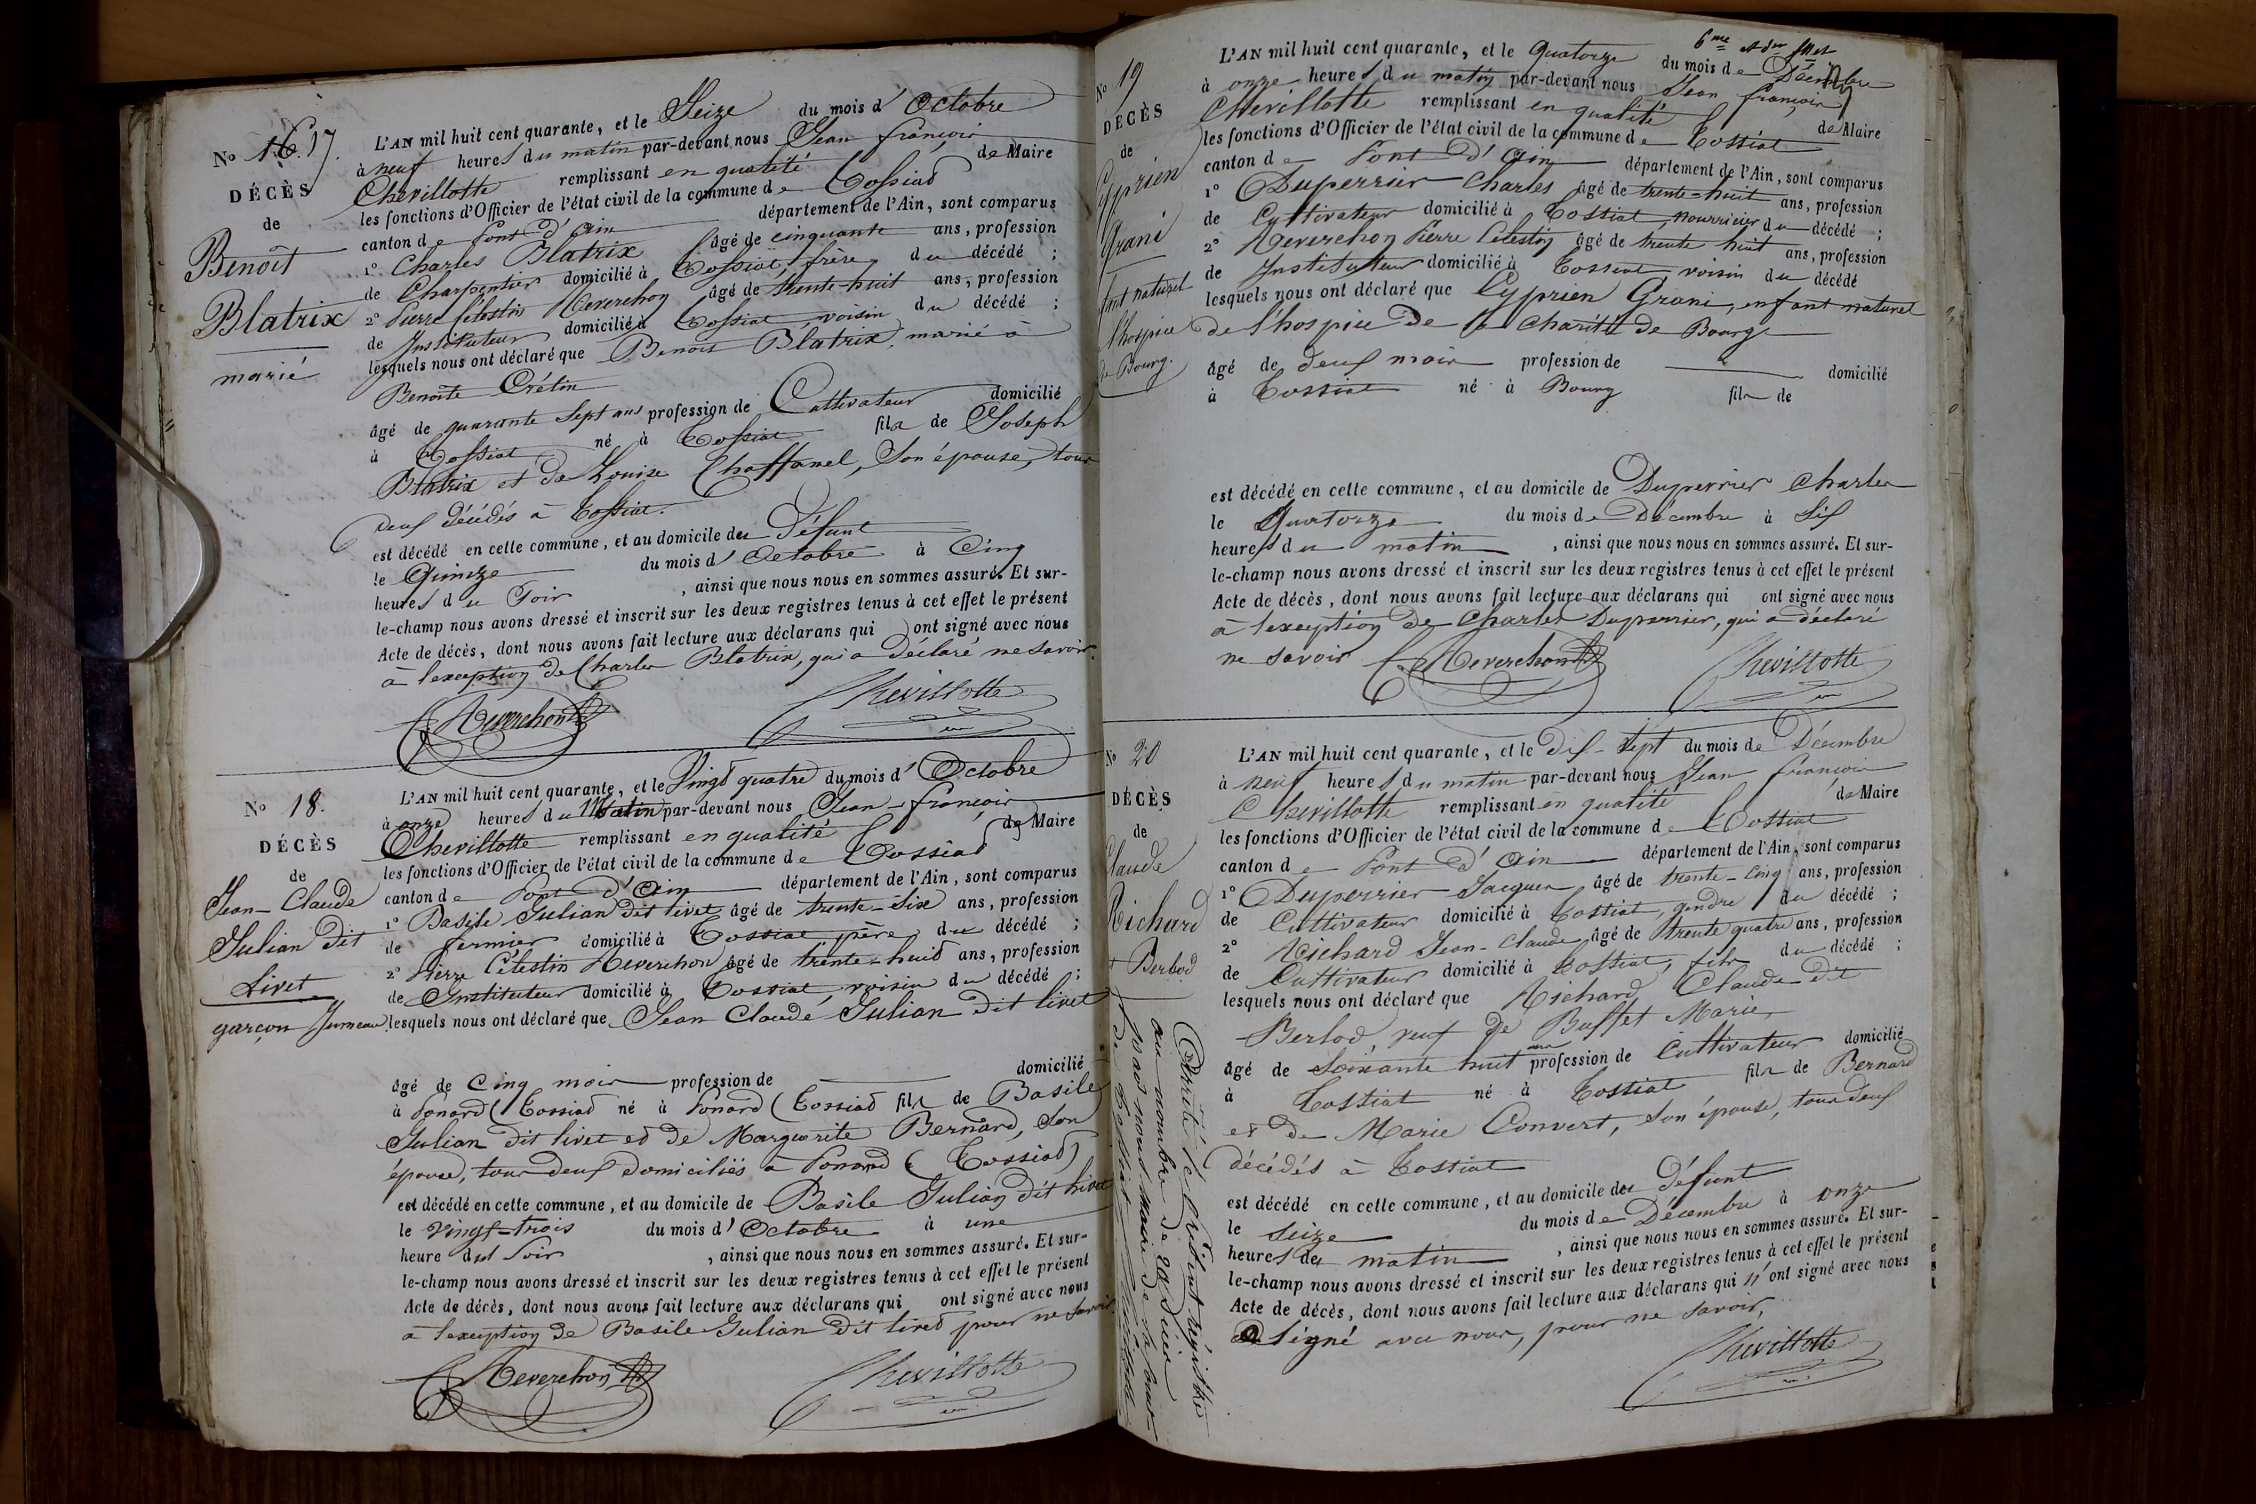 No 16. 17.
DÉCÈS
de
Benoît
Blatrix
marié
L'AN mil huit cent quarante, et le Seize du mois d' Octobre
à neuf heures du matin par-devant nous Jean françois
Chevillotte remplissant en qualité de Maire
les fonctions d'Officier de l'état civil de la commune de Tossiat
canton de Pont d'ain département de l'Ain, sont comparus
1° Charles Blatrix âgé de cinquante ans, profession
de Charpentier domicilié à Tossiat, frère du décédé ;
2° Pierre Célestin Reverchon âgé de trente-huit ans, profession
de Instituteur domicilié à Tossiat, voisin du décédé ;
lesquels nous ont déclaré que Benoit Blatrix, marié à
Benoîte Crétin
âgé de quarante sept ans profession de Cultivateur domicilié
à Tossiat né à Tossiat fils de Joseph
Blatrix et de Louise Chaffanel, Son épouse, tous
deux décédés à Tossiat.
est décédé en cette commune, et au domicile du Défunt
le Quinze du mois d' Octobre à Cinq
heures du Soir, ainsi que nous nous en sommes assuré. Et sur-
le-champ nous avons dressé et inscrit sur les deux registres tenus à cet effet le présent
Acte de décès, dont nous avons fait lecture aux déclarans qui ont signé avec nous
à l'exception de Charles Blatrix, qui a déclaré ne savoir.
Reverchon Chevillotte
No 18.
DÉCÈS
de
Jean-Claude
Julian dit
Livet
garçon Jumeau
L'AN mil huit cent quarante, et le Vingt quatre du mois d' Octobre
à onze heures du Matin par-devant nous Jean-françois
Chevillotte remplissant en qualité de Maire
les fonctions d'Officier de l'état civil de la commune de Tossiat
canton de Pont d'ain département de l'Ain, sont comparus
1° Basile Julian dit livet âgé de trente-Six ans, profession
de fermier domicilié à Tossiat père du décédé ;
2° Pierre Célestin Reverchon âgé de trente-huit ans, profession
de Instituteur domicilié à Tossiat, voisin du décédé ;
lesquels nous ont déclaré que Jean Claude Julian dit livet
âgé de Cinq mois profession de domicilié
à Ponard (Tossiat né à Ponard (Tossiat fils de Basile
Julian dit livet et de Marguerite Bernard, Son
épouse, tous deux domiciliés à Ponard (Tossiat)
est décédé en cette commune, et au domicile de Basile Julian dit livet
le Vingt-trois du mois d' Octobre à une
heure du Soir, ainsi que nous nous en sommes assuré. Et sur-
le-champ nous avons dressé et inscrit sur les deux registres tenus à cet effet le présent
Acte de décès, dont nous avons fait lecture aux déclarans qui ont signé avec nous
à l'exception de Basile Julian dit livet pour ne savoir
Reverchon Chevillotte
6me et der
No 19
DÉCÈS
de
Cyprien
Grani
naturel
l'hospice
de Bourg.
L'AN mil huit cent quarante, et le Quatorze du mois de Décembre
à onze heures du matin par-devant nous Jean françois
Chevillotte remplissant en qualité de Maire
les fonctions d'Officier de l'état civil de la commune de Tossiat
canton de Pont d'ain département de l'Ain, sont comparus
1° Duperrier Charles âgé de trente-huit ans, profession
de Cultivateur domicilié à Tossiat, nourricier du décédé ;
2° Reverchon Pierre Célestin âgé de trente huit ans, profession
de Instituteur domicilié à Tossiat voisin du décédé
lesquels nous ont déclaré que Cyprien Grani, enfant naturel
de l'hospice de la charité de Bourg
âgé de deux mois profession de domicilié
à Tossiat né à Bourg fils de
est décédé en cette commune, et au domicile de Duperrier Charles
le Quatorze du mois de Décembre à Six
heures du matin, ainsi que nous nous en sommes assuré. Et sur-
le-champ nous avons dressé et inscrit sur les deux registres tenus à cet effet le présent
Acte de décès, dont nous avons fait lecture aux déclarans qui ont signé avec nous
à l'exception de Charles Duperrier, qui a déclaré
ne savoir Reverchon Chevillotte
No 20
DÉCÈS
de
Claude
Richard
Berlod
L'AN mil huit cent quarante, et le Dix-Sept du mois de Décembre
à neuf heures du matin par-devant nous Jean françois
Chevillotte remplissant en qualité de Maire
les fonctions d'Officier de l'état civil de la commune de Tossiat
canton de Pont d'ain département de l'Ain, sont comparus
1° Duperrier Jacques âgé de trente-Cinq ans, profession
de Cultivateur domicilié à Tossiat, gendre du décédé ;
2° Richard Jean-Claude âgé de trente quatre ans, profession
de Cultivateur domicilié à Tossiat, fils du décédé ;
lesquels nous ont déclaré que Richard Claude dit
Berlod, veuf de Buffet Marie,
âgé de Soixante huit ans profession de Cultivateur domicilié
à Tossiat né à Tossiat fils de Bernard
et de Marie Convert, Son épouse, tous deux
décédés à Tossiat
est décédé en cette commune, et au domicile du défunt
le Seize du mois de Décembre à onze
heures de matin, ainsi que nous nous en sommes assuré. Et sur-
le-champ nous avons dressé et inscrit sur les deux registres tenus à cet effet le présent
Acte de décès, dont nous avons fait lecture aux déclarans qui n'ont signé avec nous
Signé avec nous, pour ne savoir,
Chevillotte
le présent régistre
au nombre de
par nous maire de